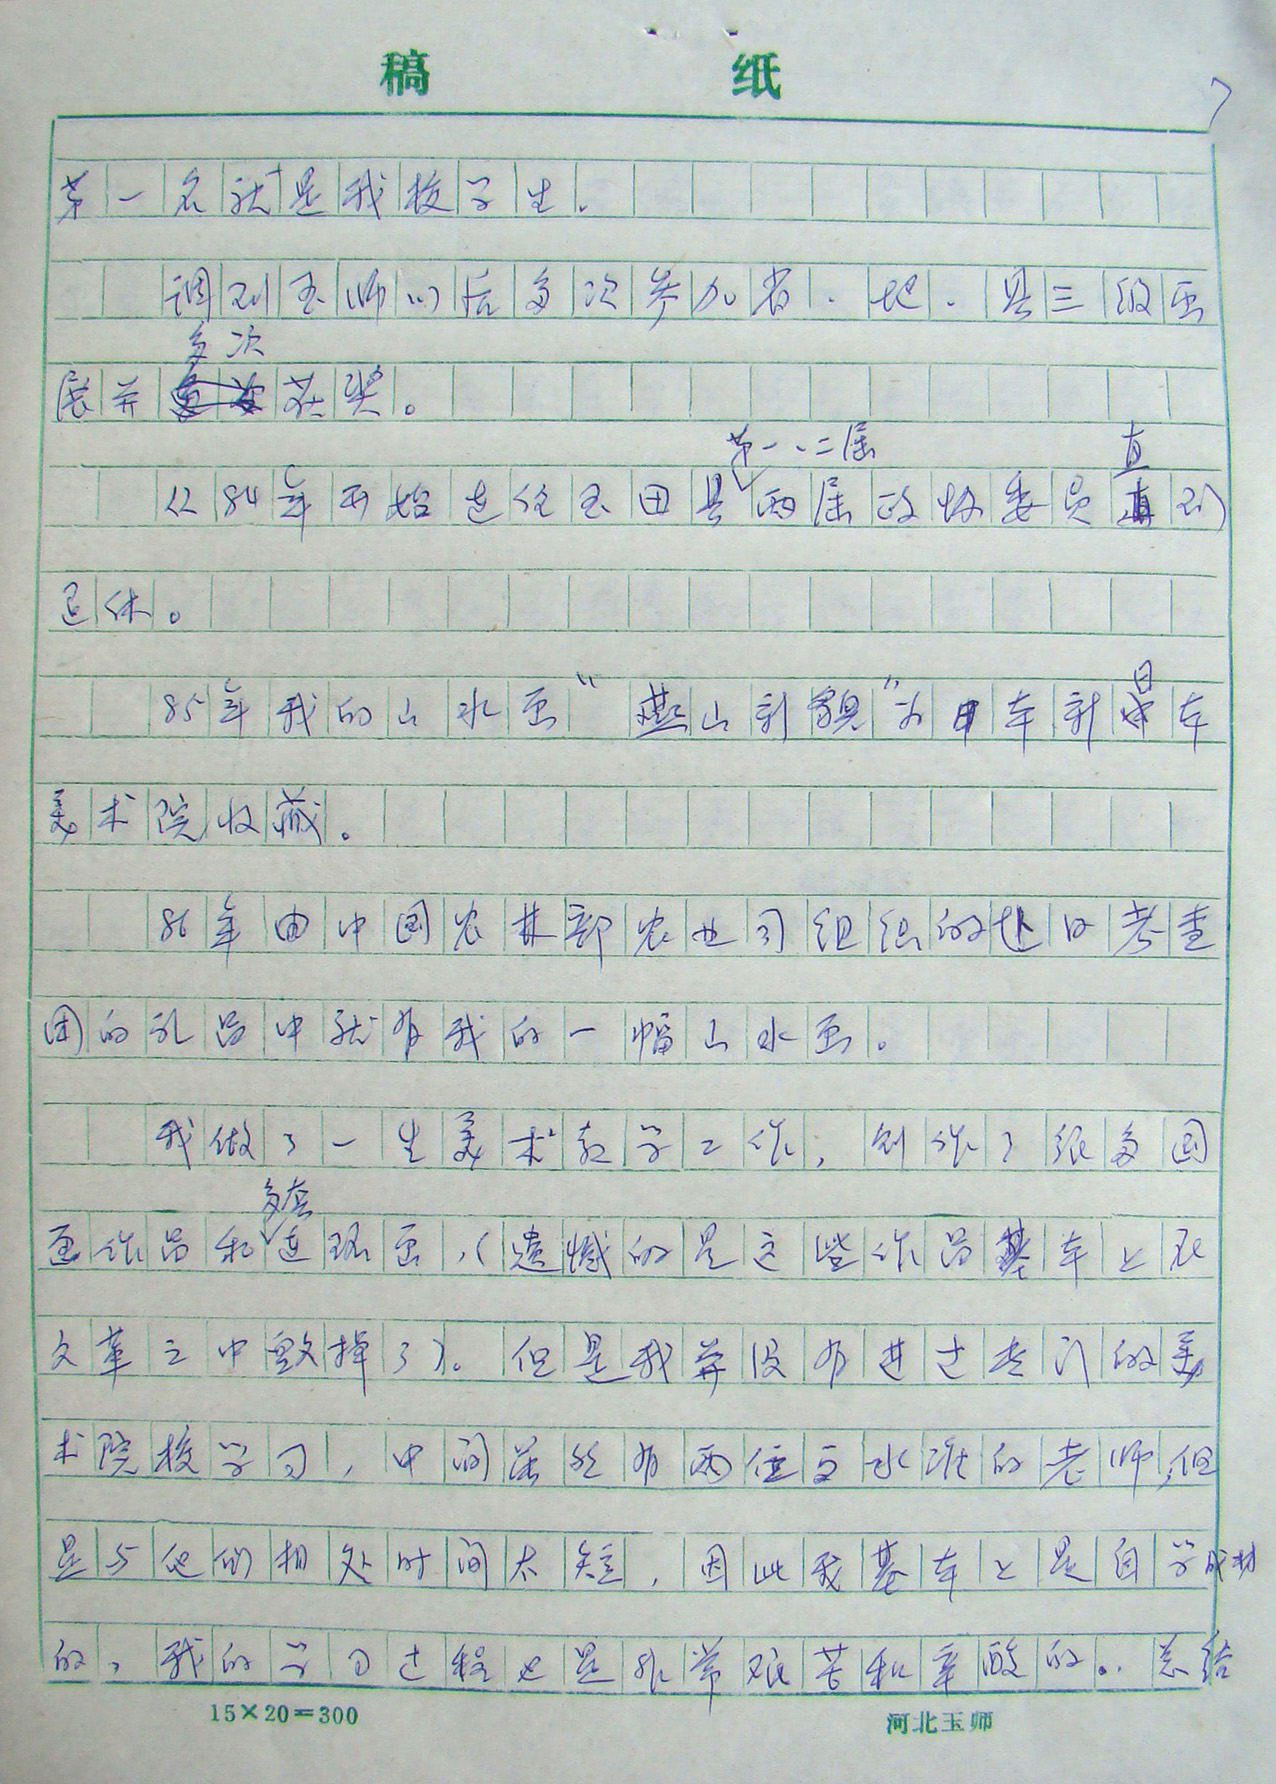 稿 纸
7
第一名就是我校学生.
调到玉师以后多次参加省、地、县三级画
多次
展并获奖。
第一、二届 直
从84年开始连任玉田县两届政协委员直到
退休。
85年我的山水画“燕山新貌”为日本新日本
美术院收藏。
86年由中国农林部农业司组织的赴日考查
团的礼品中就有我的一幅山水画。
我做了一生美术教学工作,创作了很多国
多套
画作品和连环画,(遗憾的是这些作品基本上在
文革之中毁掉了)。但是我并没有进过专门的美
术院校学习,中间虽然有两位高水准的老师,但
是与他们相处时间太短,因此我基本上是自学成材
的,我的学习过程也是非常艰苦和辛酸的。总结
15×20=300
河北玉师